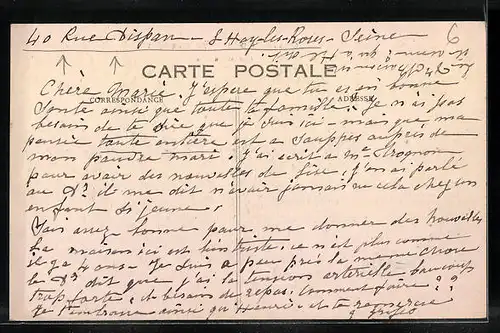 40 Rue Dispan - L'Hay-les-Roses - Seine
6
CARTE POSTALE
CORRESPONDANCE
ADRESSE
Chère Marie. J'espère que tu es en bonne
santé ainsi que toute ta famille. Je n'ai pas
besoin de te dire que je suis ici - mais que ma
pensée toute entière est à Souppes auprès de
mon pauvre mari. J'ai écrit à Mme
pour avoir des nouvelles de J'en ai parlé
au Dr il me dit n'avoir jamais vu cela chez un
enfant si jeune.
Sois assez bonne pour me donner des nouvelles
La maison ici est bien triste, ce n'est plus comme
il y a 4 ans - Je suis à peu près la même chose
le Dr dit que j'ai la tension artérielle beaucoup
trop forte, et besoin de repos. Comment faire ??
Je t'embrasse ainsi que Henri - et te remercie